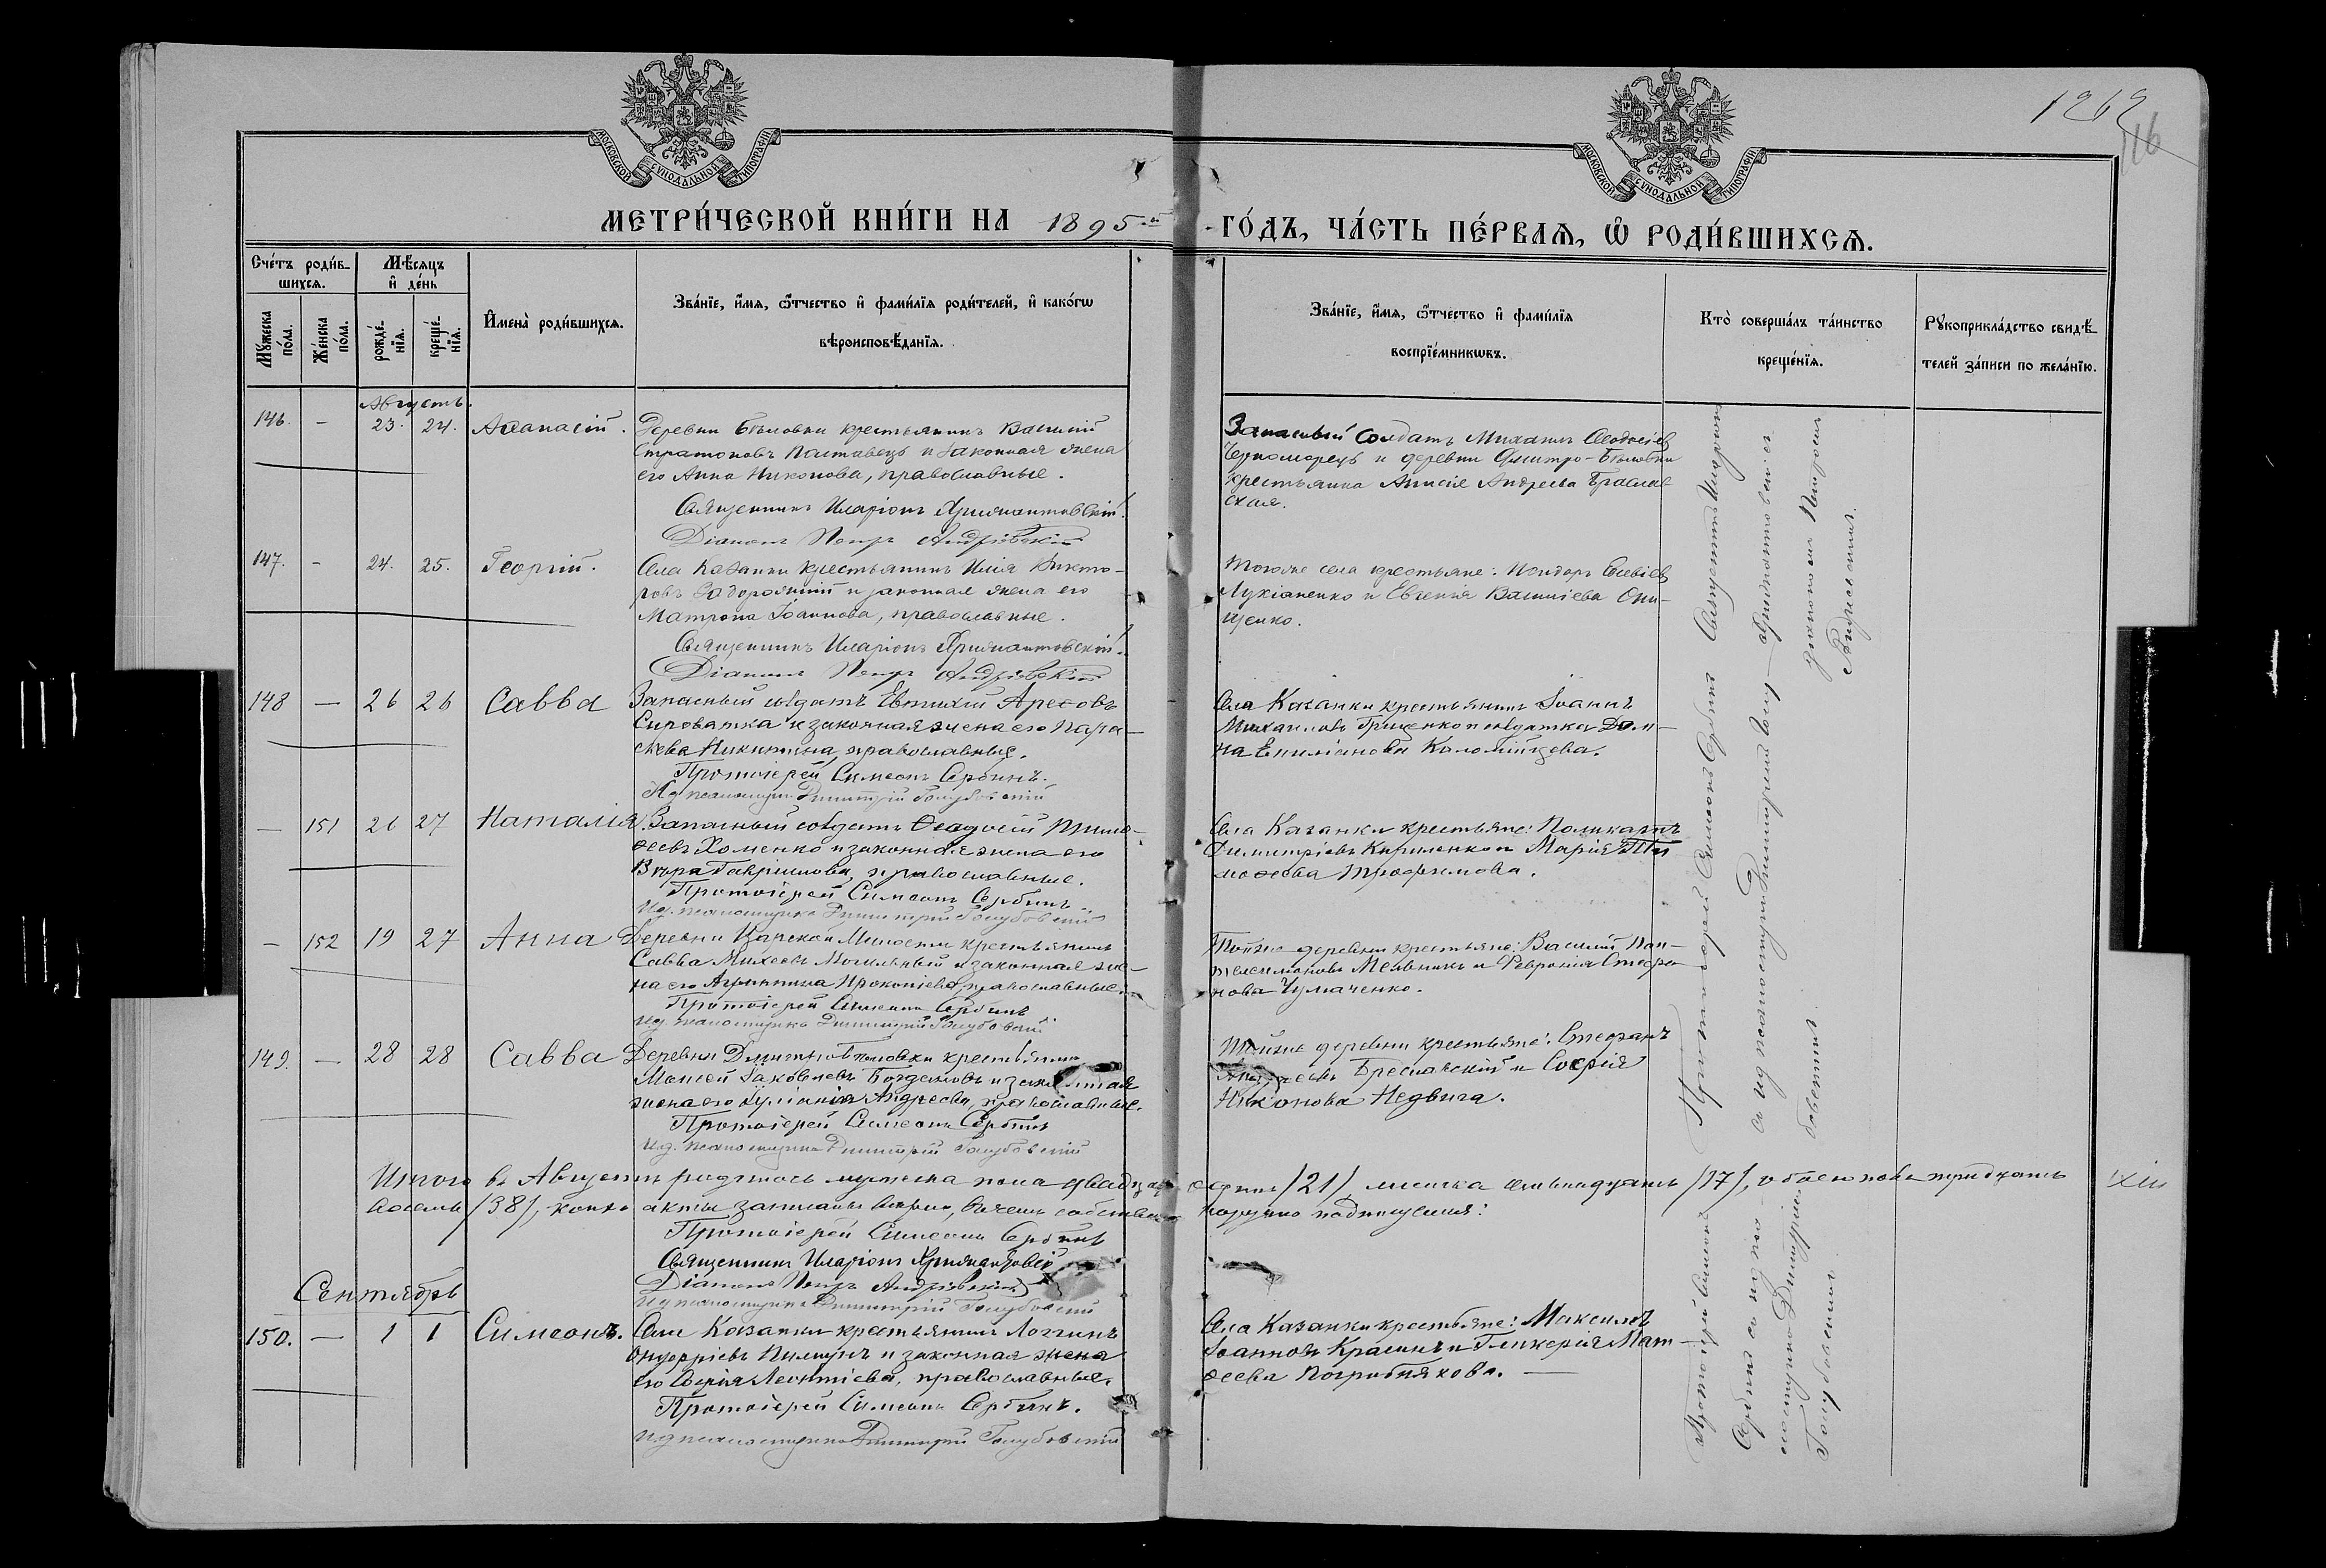 МОСКОВСКОЙ СУНОДАЛЬНОЙ ТИПОГРАФІИ
МОСКОВСКОЙ СУНОДАЛЬНОЙ ТИПОГРАФІИ
1262
116
МЕТРИ́ЧЕСКОЙ КНИ́ГИ НА 1895-й ГО́ДЪ, ЧА́СТЬ ПЕ́РВАѦ, Ѽ РОДИ́ВШИХСѦ.
Сче́тъ роди́в-
шихсѧ.
Мѣ́сѧцъ
и҆ де́нь
Мꙋ́жеска
по́ла.
Же́нска
по́ла.
рожде́-
нїѧ.
креще́-
нїѧ.
И҆мена̀ роди́вшихсѧ.
Зва́нїе, и҆́мѧ, ѻ҆́тчество и҆ фами́лїѧ роди́телей, и҆ како́гѡ
вѣроисповѣ́данїѧ.
Зва́нїе, и҆́мѧ, ѻ҆́тчество и҆ фами́лїѧ
воспрїе́мникѡвъ.
Кто̀ соверша́лъ та́инство
креще́нїѧ.
Рꙋкоприкла́дство свидѣ́-
телей за́писи по жела́нїю.
Августъ.
146. - 23. 24. Аѳанасій.
Деревни Бѣловки крестьянинъ Василій
Стратоновъ Поставецъ и законная жена
его Анна Никонова, православные.
Священникъ Иларіонъ Крижантовскій.
Діаконъ Петръ Андріевскій
Запасный Солдатъ Михаилъ Ѳеодосіев
Черноморецъ и деревни Дмитро-Бѣловки
крестьянка Анисія Андреева Браслав
ская.
147. - 24. 25. Георгій.
Села Казанки крестьянинъ Илія Викто-
ровъ Задорожній и законная жена его
Матрона Іоаннова, православные.
Священникъ Иларіонъ Крижантовскій.
Діаконъ Петръ Андріевскій
Тогоже села крестьяне: Исидоръ Савіев
Лукіаненко и Евгенія Василіева Они-
щенко.
148 — 26 26 Савва
Запасный солдатъ Евтихій Арефовъ
Сыроватка и законная жена его Пара-
скева Никитина, православные.
Протоіерей Симеонъ Сербинъ.
Ид псаломщика Димитрій Голубовскій
Села Казанки крестьянинъ Іоаннъ
Михаиловъ Гриценко и солдатка Дом-
на Емиліанова Коломійцева.
— 151 26 27 Наталія
Запасный солдатъ Ѳеодосій Тимо-
ѳеевъ Хоменко и законная жена его
Вѣра Гавріилова, православные.
Протоіерей Симеонъ Сербинъ.
Ид. псаломщика Димитрій Голубовскій
Села Казанки крестьяне: Поликарпъ
Димитріевъ Кириленко и Марія Ти
моѳеева Трофимова.
— 152 19 27 Анна
Деревни Царской Милости крестьянинъ
Савва Михеевъ Могильный и законная же-
на его Агриппина Прокопіева, православные.
Протоіерей Симеонъ Сербинъ
Ид псаломщика Димитрій Голубовскій
Тойже деревни крестьяне: Василій Пан-
телеимоновъ Мельникъ и Февронія Стефа
нова Чумаченко.
149. — 28 28 Савва
Деревни Дмитро-Бѣловки крестьянинъ
Моисей Іаковлевъ Богдановъ и законная
жена его Іуліанія Андреева, православные.
Протоіерей Симеонъ Сербинъ
Ид. псаломщика Димитрій Голубовскій
Тойже деревни крестьяне: Стефанъ
Андреевъ Бреславскій и Софія
Никонова Недвига.
Священникъ Иларіонъ
Крижантовскій съ
діакономъ Петромъ
Андріевскимъ.
Протоіерей Симеонъ Сербинъ
съ ид псаломщика Димитріемъ Голу-
бовскимъ.
Итого въ Августѣ родилось мужеска пола двадцать одинъ /21/, женска семьнадцать /17/, обоего пола тридцать
восемь /38/, коихъ акты записаны вѣрно, въ чемъ собственноручно подписуемся:
Протоіерей Симеонъ Сербинъ
Священникъ Иларіонъ Крижантовскій
Діаконъ Петръ Андріевскій
Ид псаломщика Димитрій Голубовскій
Сентябрь
150. — 1 1 Симеонъ.
Села Казанки крестьянинъ Логгинъ
Онуфріевъ Пилипъ и законная жена
его Софія Леонтіева, православные.
Протоіерей Симеонъ Сербинъ.
Ид псаломщика Димитрій Голубовскій
Села Казанки крестьяне: Максимъ
Іоанновъ Крашинъ и Гликерія Мат-
ѳеева Погрибнякова. —
Протоіерей Симеонъ
Сербинъ съ ид пса-
ломщика Димитріемъ
Голубовскимъ